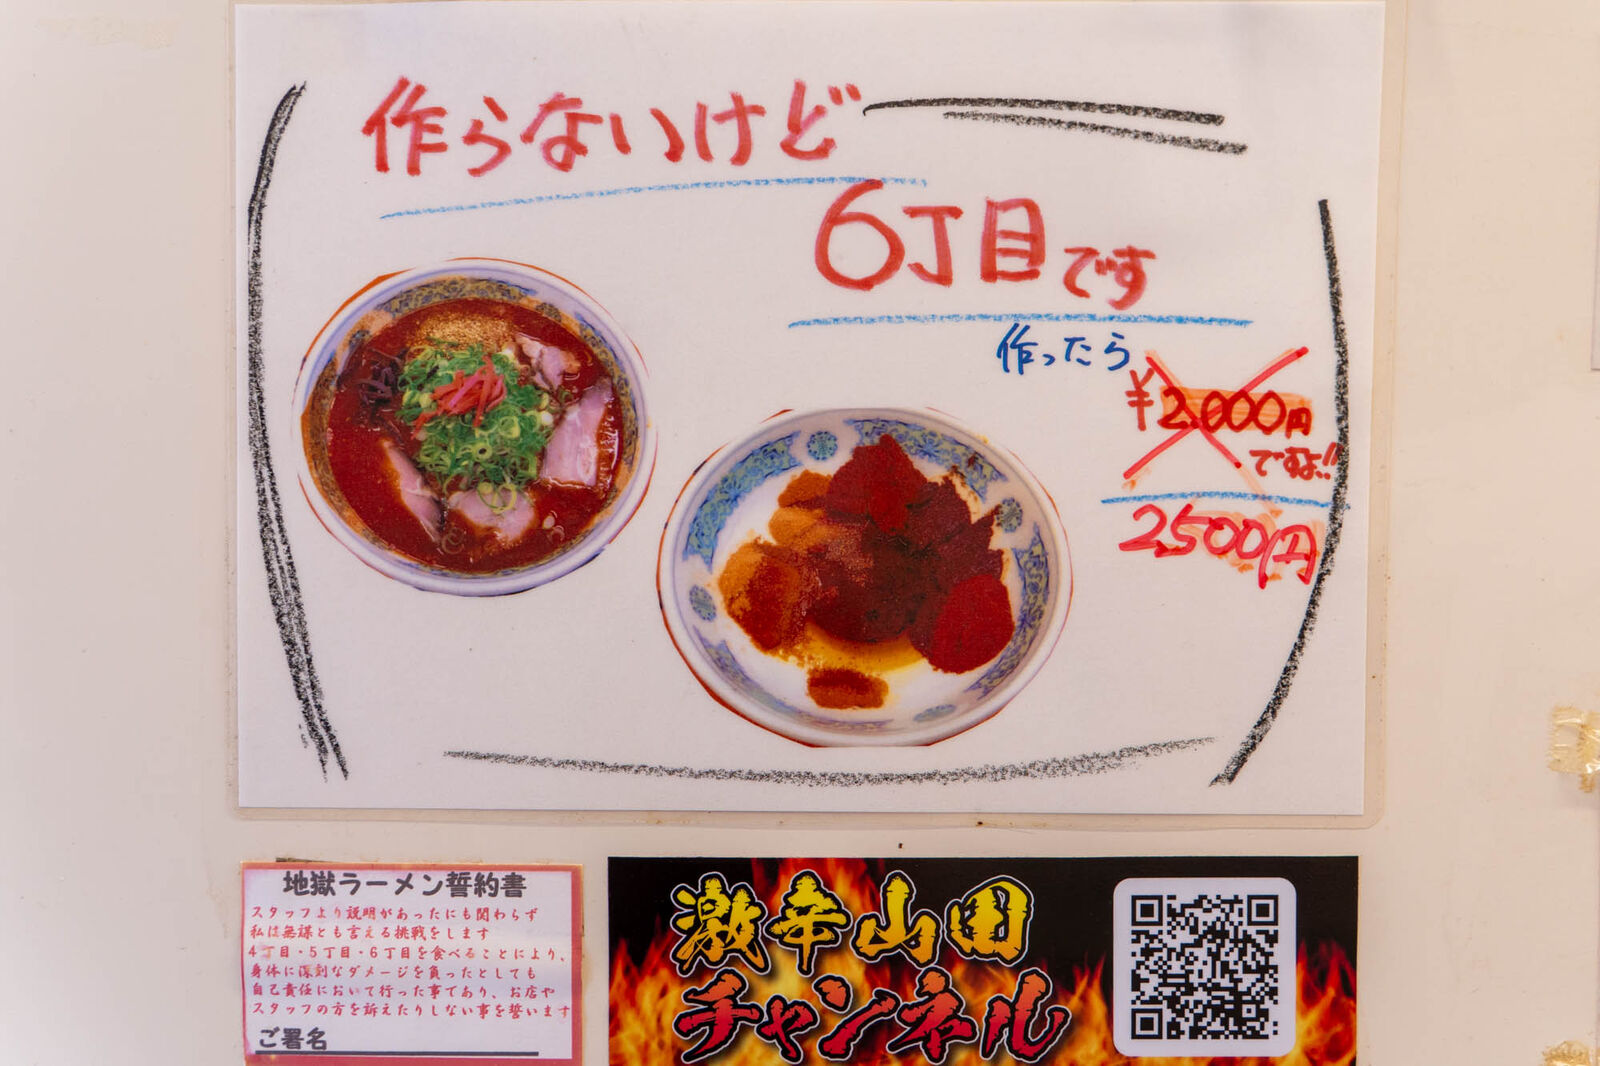 作らないけど
6丁目です
作ったら
¥2.000円
ですよ!!
2,500円
地獄ラーメン誓約書
スタッフより説明があったにも関わらず
私は無謀とも言える挑戦をします
4丁目・5丁目・6丁目を食べることにより、
身体に深刻なダメージを負ったとしても
自己責任において行った事であり、お店や
スタッフの方を訴えたりしない事を誓います
ご署名
激辛山田
チャンネル